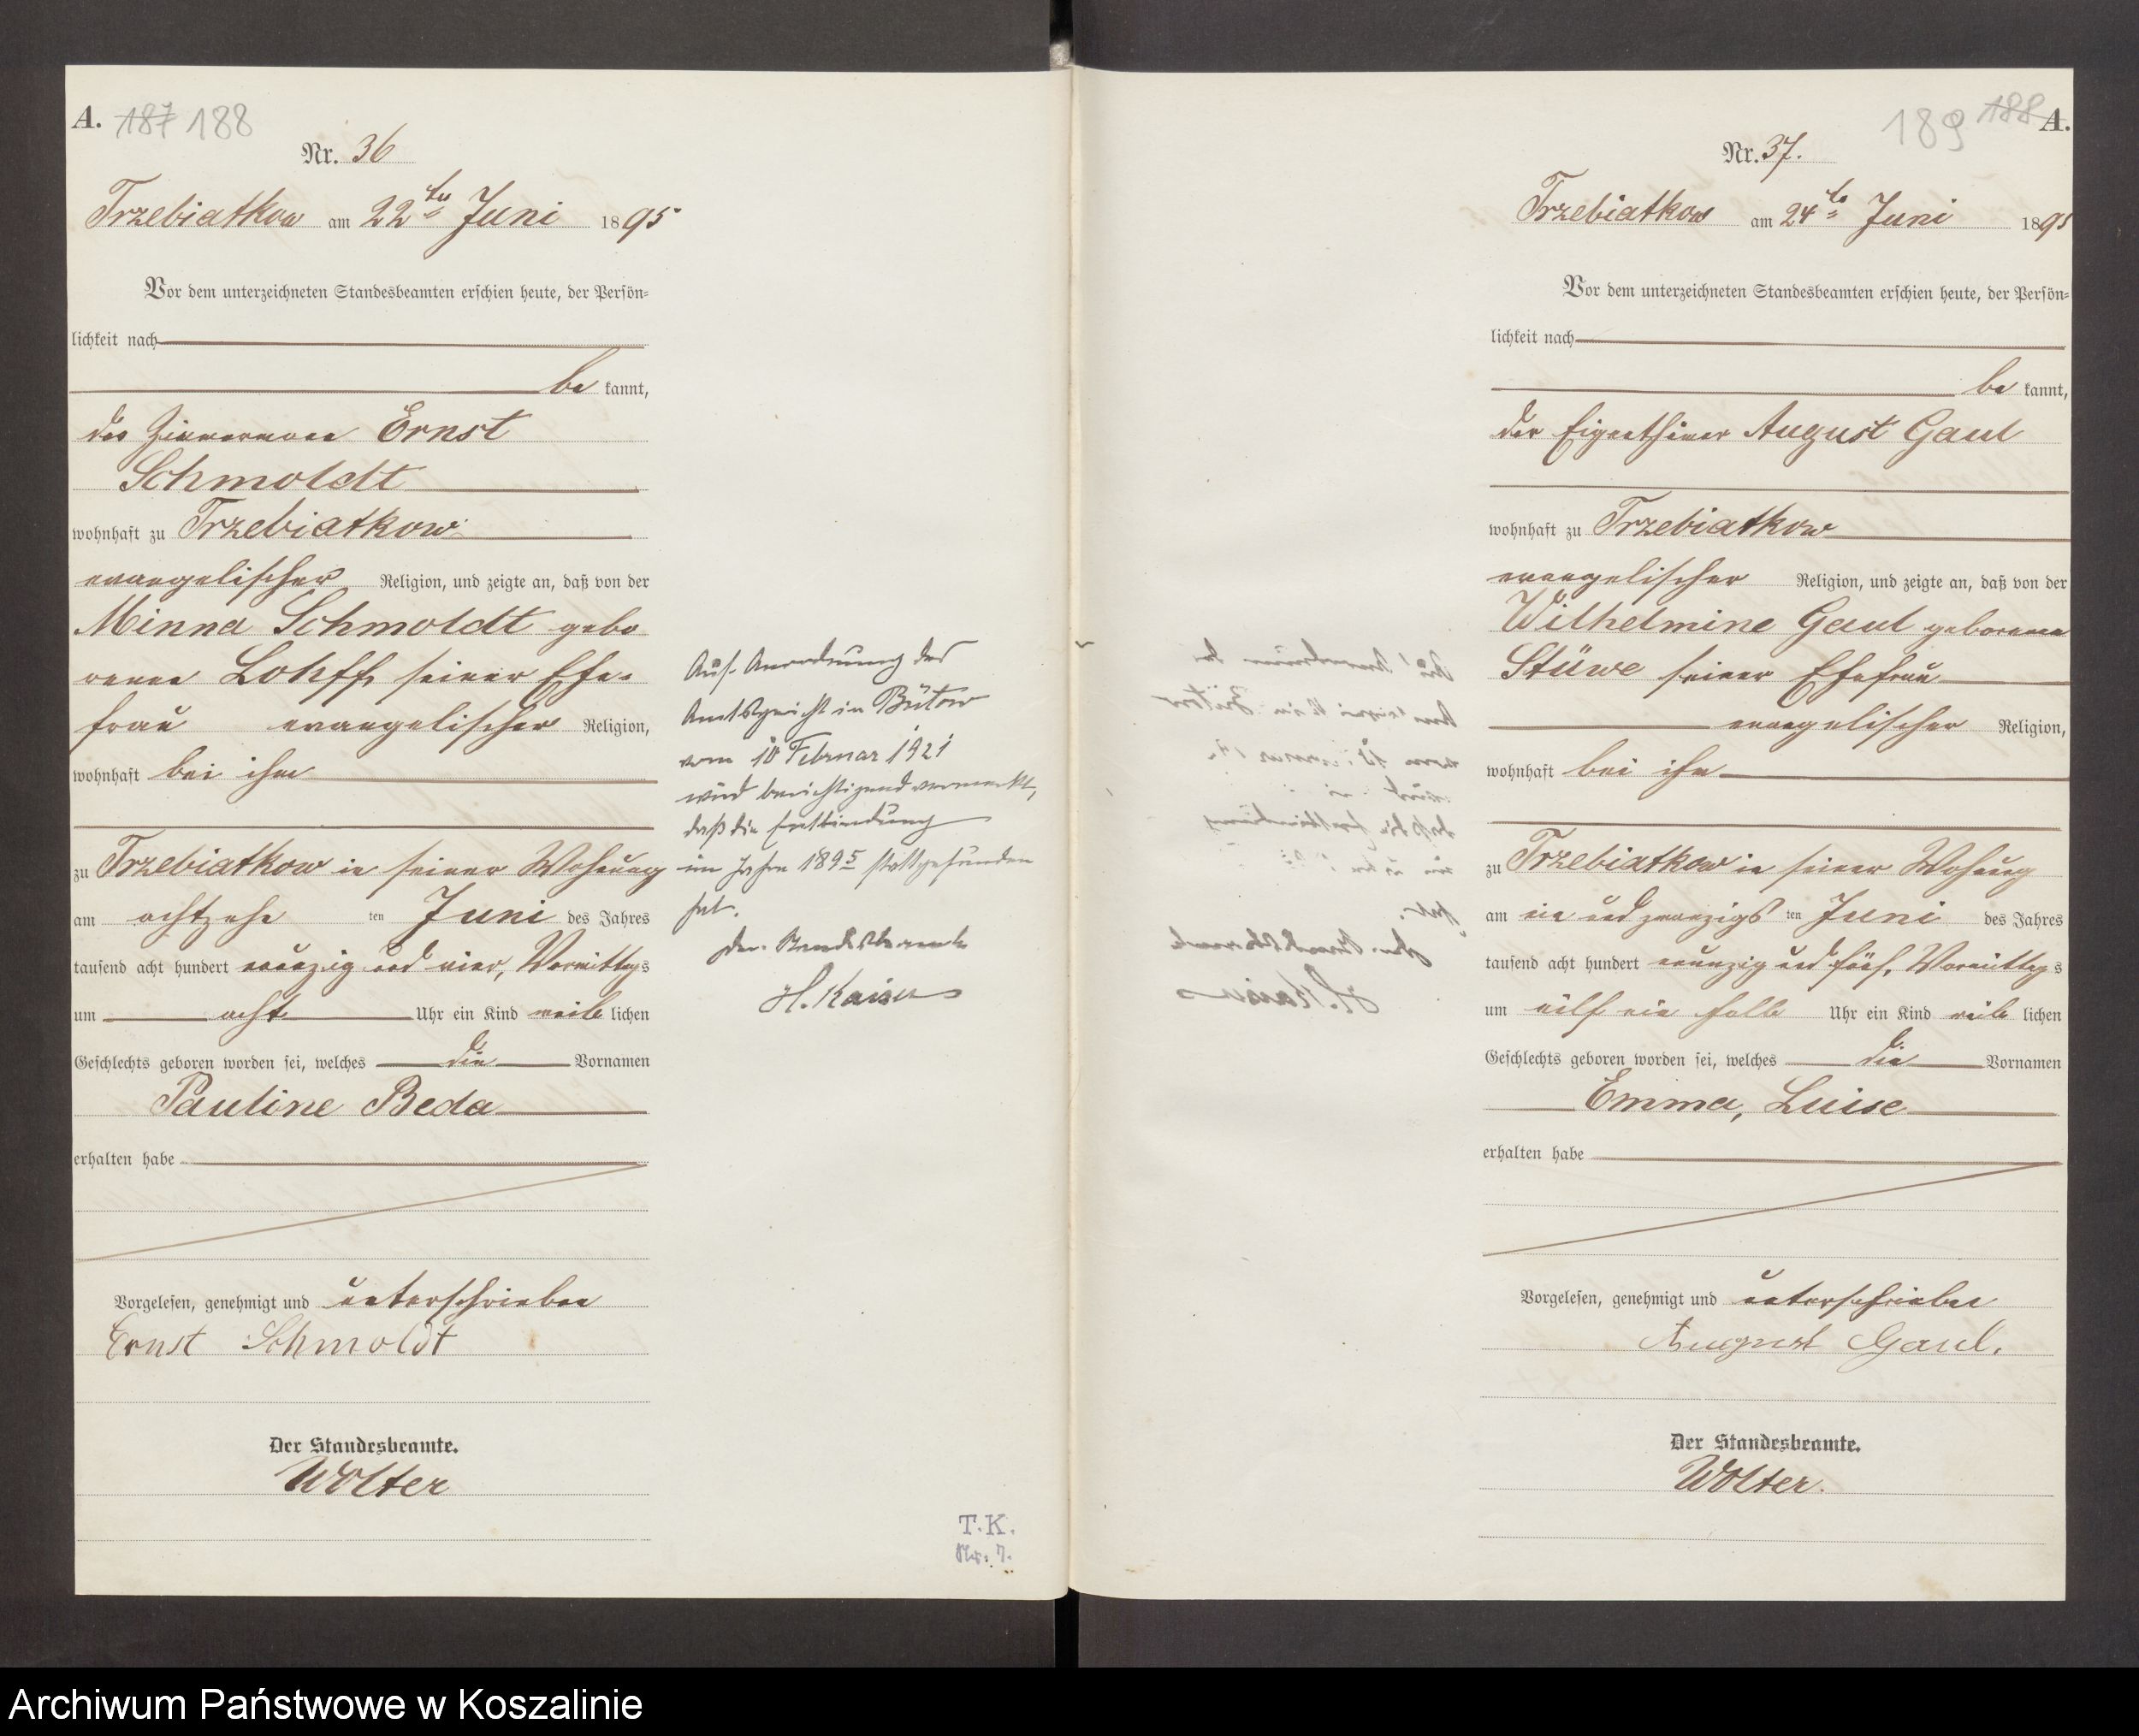 A. 187 188
Nr. 36
Trzebiatkow am 22ten Juni 1895
Vor dem unterzeichneten Standesbeamten erschien heute, der Persön=
lichkeit nach
be kannt,
der Zimmermann Ernst
Schmoldt
wohnhaft zu Trzebiatkow
evangelischer Religion, und zeigte an, daß von der
Minna Schmoldt gebo
renen Lohff, seiner Ehe=
frau evangelischer Religion,
wohnhaft bei ihm
zu Trzebiatkow in seiner Wohnung
am achtzehn ten Juni des Jahres
tausend acht hundert neunzig und vier, Vormittags
um acht Uhr ein Kind weib lichen
Geschlechts geboren worden sei, welches die Vornamen
Pauline Beda
erhalten habe
Vorgelesen, genehmigt und unterschrieben
Ernst Schmoldt
Der Standesbeamte.
Wolter
Auf Anordnung des
Amtsgericht in Bütow
vom 10 Februar 1921
wird berichtigend vermerkt,
daß die Entbindung
im Jahre 1895 stattgefunden
hat.
Der Standesbeamte
H. Kaiser
T.K.
Nr. 7.
189 188 A.
Nr. 37.
Trzebiatkow am 24ten Juni 1895
Vor dem unterzeichneten Standesbeamten erschien heute, der Persön=
lichkeit nach
be kannt,
der Eigenthümer August Gaul
wohnhaft zu Trzebiatkow
evangelischer Religion, und zeigte an, daß von der
Wilhelmine Gaul geborenen
Stüwe seiner Ehefrau
evangelischer Religion,
wohnhaft bei ihm
zu Trzebiatkow in seiner Wohnung
am ein und zwanzigs ten Juni des Jahres
tausend acht hundert neunzig und fünf, Vormittags
um eilf ein halb Uhr ein Kind weib lichen
Geschlechts geboren worden sei, welches die Vornamen
Emma, Luise
erhalten habe
Vorgelesen, genehmigt und unterschrieben
August Gaul.
Der Standesbeamte.
Wolter.
Archiwum Państwowe w Koszalinie